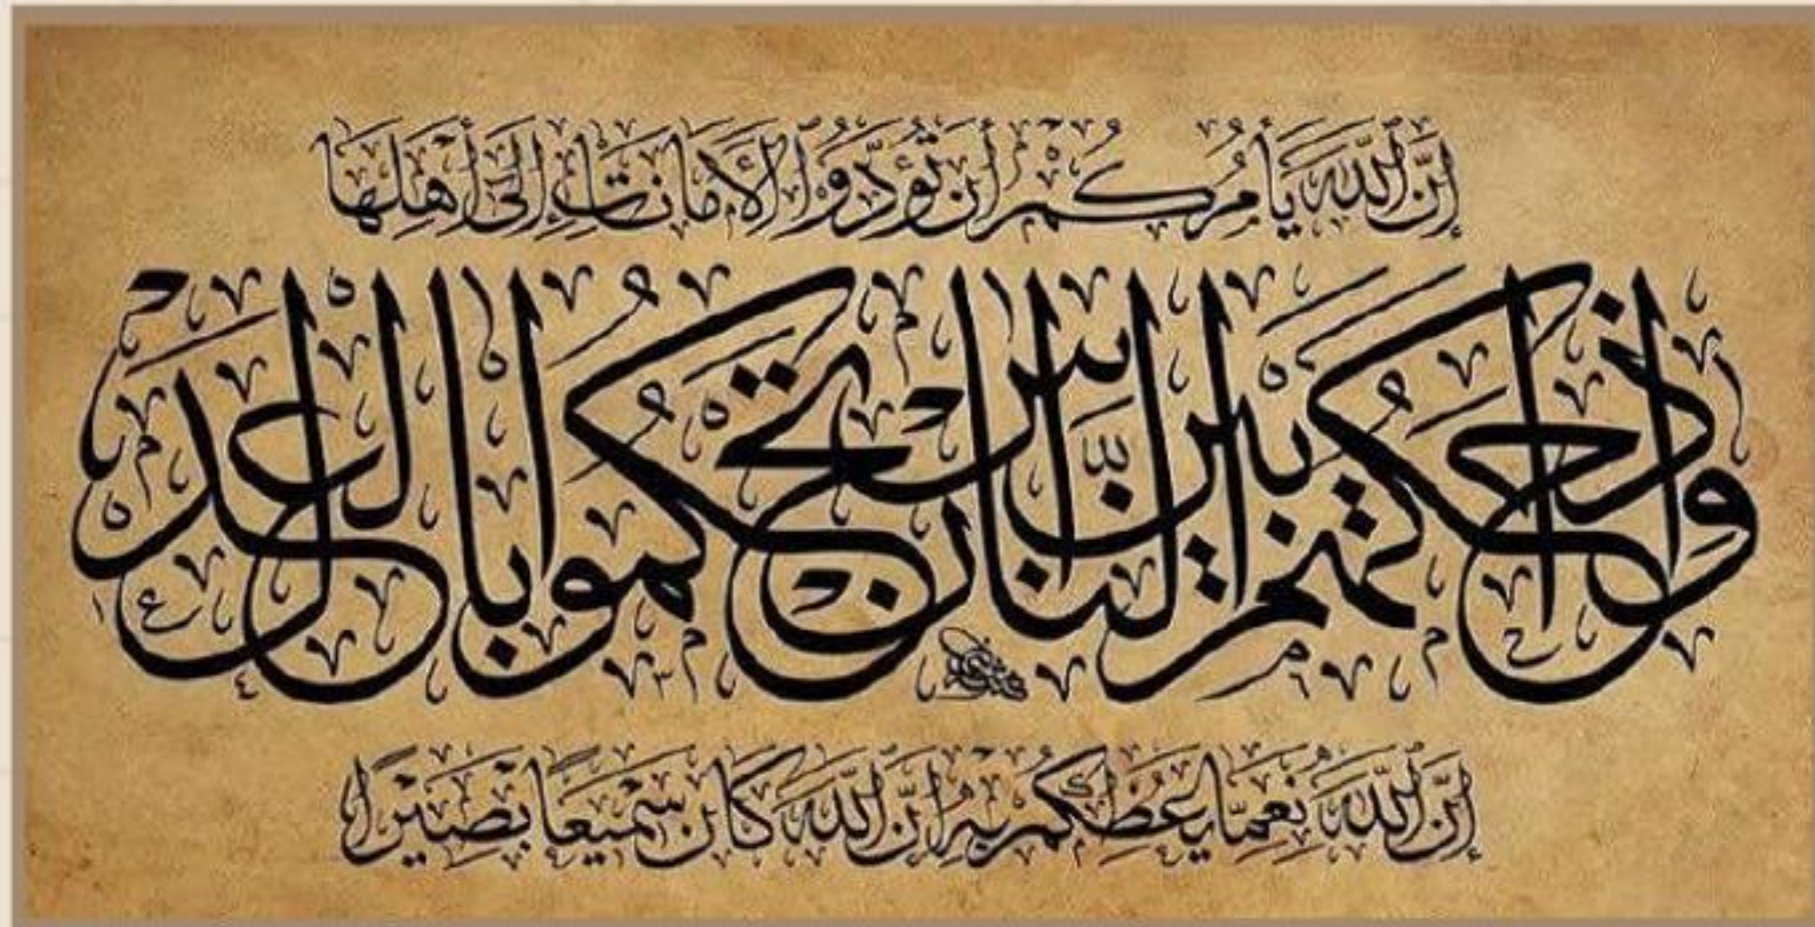 إِنَّ اللَّهَ يَأْمُرُكُمْ أَن تُؤَدُّوا الْأَمَانَاتِ إِلَىٰ أَهْلِهَا
وَإِذَا حَكَمْتُم بَيْنَ النَّاسِ أَن تَحْكُمُوا بِالْعَدْلِ
إِنَّ اللَّهَ نِعِمَّا يَعِظُكُم بِهِ إِنَّ اللَّهَ كَانَ سَمِيعًا بَصِيرًا